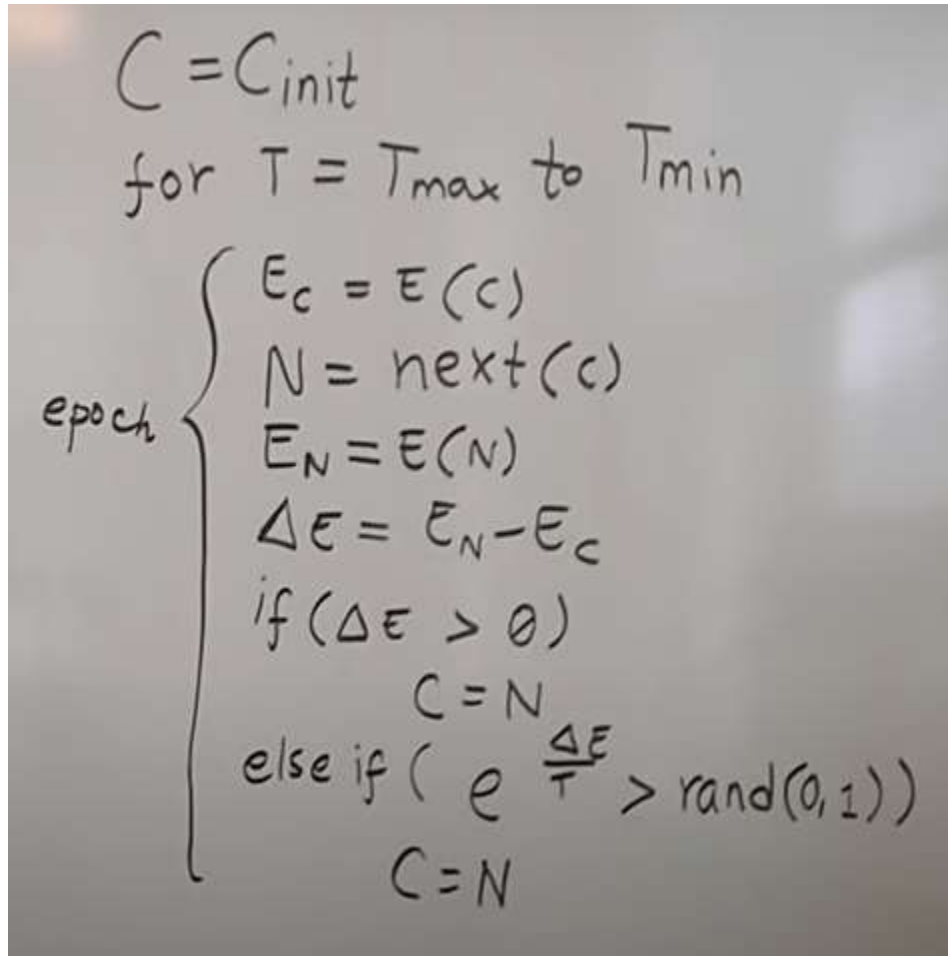 C = C_init
for T = T_max to T_min
E_C = E(C)
N = next(C)
epoch
E_N = E(N)
ΔE = E_N - E_C
if (ΔE > 0)
C = N
else if ( e^(ΔE/T) > rand(0,1))
C = N